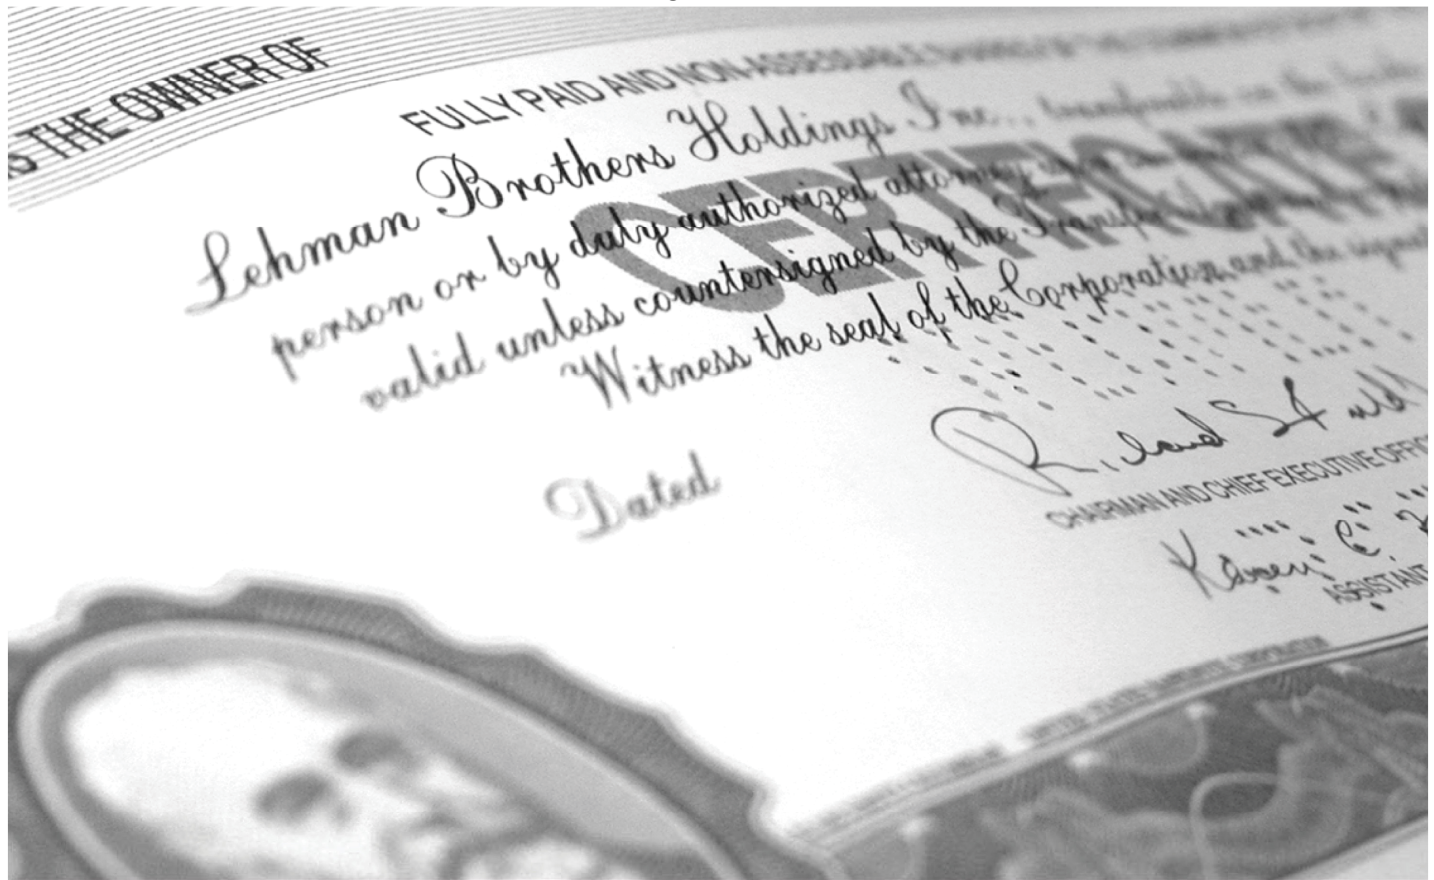 S THE OWNER OF
FULLY PAID AND NON-ASSESSABLE SHARES OF THE
Lehman Brothers Holdings Inc., transferable on the books
person or by duly authorized attorney upon
valid unless countersigned by the Transfer
Witness the seal of the Corporation and the signat
CERTIFICATE
Dated
Richard S Fuld
CHAIRMAN AND CHIEF EXECUTIVE OFFIC
Karen C.
ASSISTANT